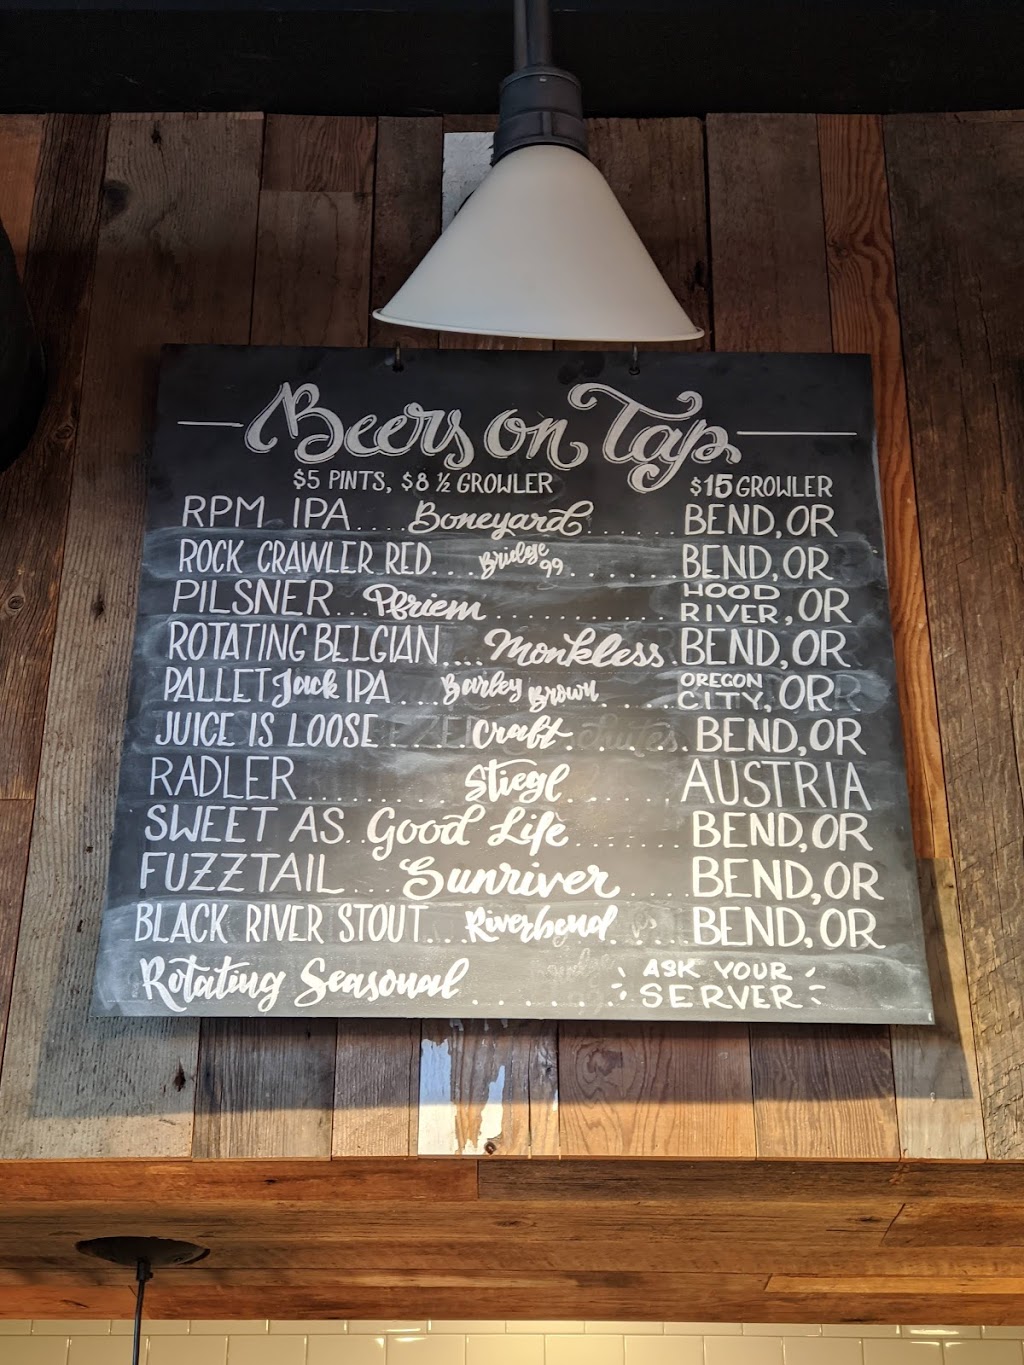 Beers on Tap
$5 PINTS, $8 ½ GROWLER $15 GROWLER
RPM IPA.... Boneyard...... BEND, OR
ROCK CRAWLER RED.... Bridge 99...... BEND, OR
PILSNER... Pfriem............ HOOD RIVER, OR
ROTATING BELGIAN.... Monkless. BEND, OR
PALLET Jack IPA .... Barley Brown...... OREGON CITY, OR
JUICE IS LOOSE ...... Craft......... BEND, OR
RADLER........... Stiegl....... AUSTRIA
SWEET AS.. Good Life....... BEND, OR
FUZZTAIL .... Sunriver.... BEND, OR
BLACK RIVER STOUT... Riverbend..... BEND, OR
Rotating Seasonal....... ASK YOUR SERVER